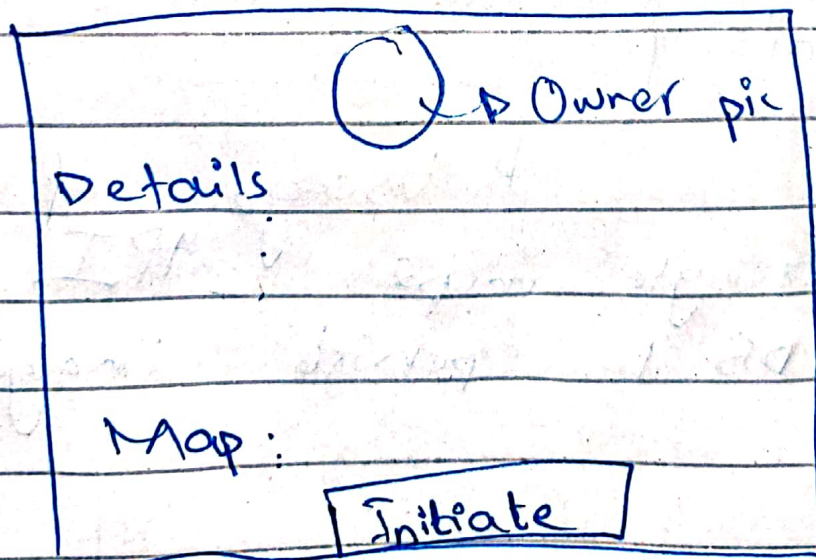 Owner pic
Details
:
Map :
Initiate